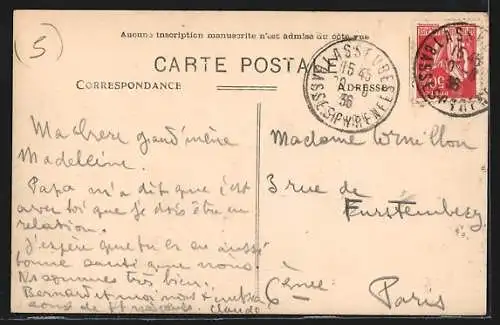 (5)
Aucune inscription manuscrite n'est admise du côté vue
CARTE POSTALE
CORRESPONDANCE
ADRESSE
LASSEUBE
15 45
36
BASSES-PYRENEES
Ma chère grand'mère
Madeleine.
Papa m'a dit que c'est
avec toi que je dois être en
relation.
J'espère que tu es en aussi
bonne santé que nous
Ns sommes très bien.
Bernard et moi nous
Claude
Madame Cornillon
3 rue de
Furstemberg
6ème
Paris